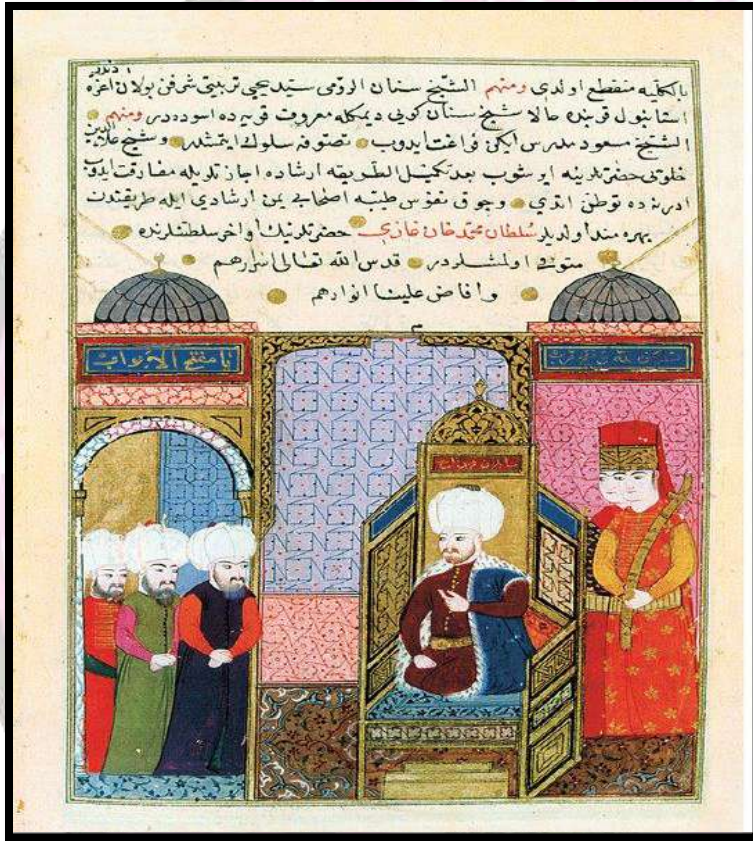 بالكليه منقطع اولدى ومنهم الشيخ سنان الرومى سيد يحيى تربيتى شرفن بولان اعزه
استانبول قربنده حالا شيخ سنان كويى ديمكله معروف قريه ده اسوده در ومنهم
الشيخ مسعود مدرس ايكن فراغت ايدوب تصوفه سلوك ايتمشلدر وشيخ علاء الدين
خلوتى حضرتلرينه ايرشوب بعد تكميل الطريقه ارشاده اجازتلريله مفارقت ايدوب
ادرنه ده توطن اتدى وچوق نفوس طيبه اصحابى يمن ارشادى ايله طريقتدن
بهره مند اولديلر سلطان محمد خان غازى حضرتلرينك اواخر سلطنتلرنده
متوفى اولمشلردر قدس الله تعالى اسرارهم
وافاض علينا انوارهم
م
يا مفتح الابواب